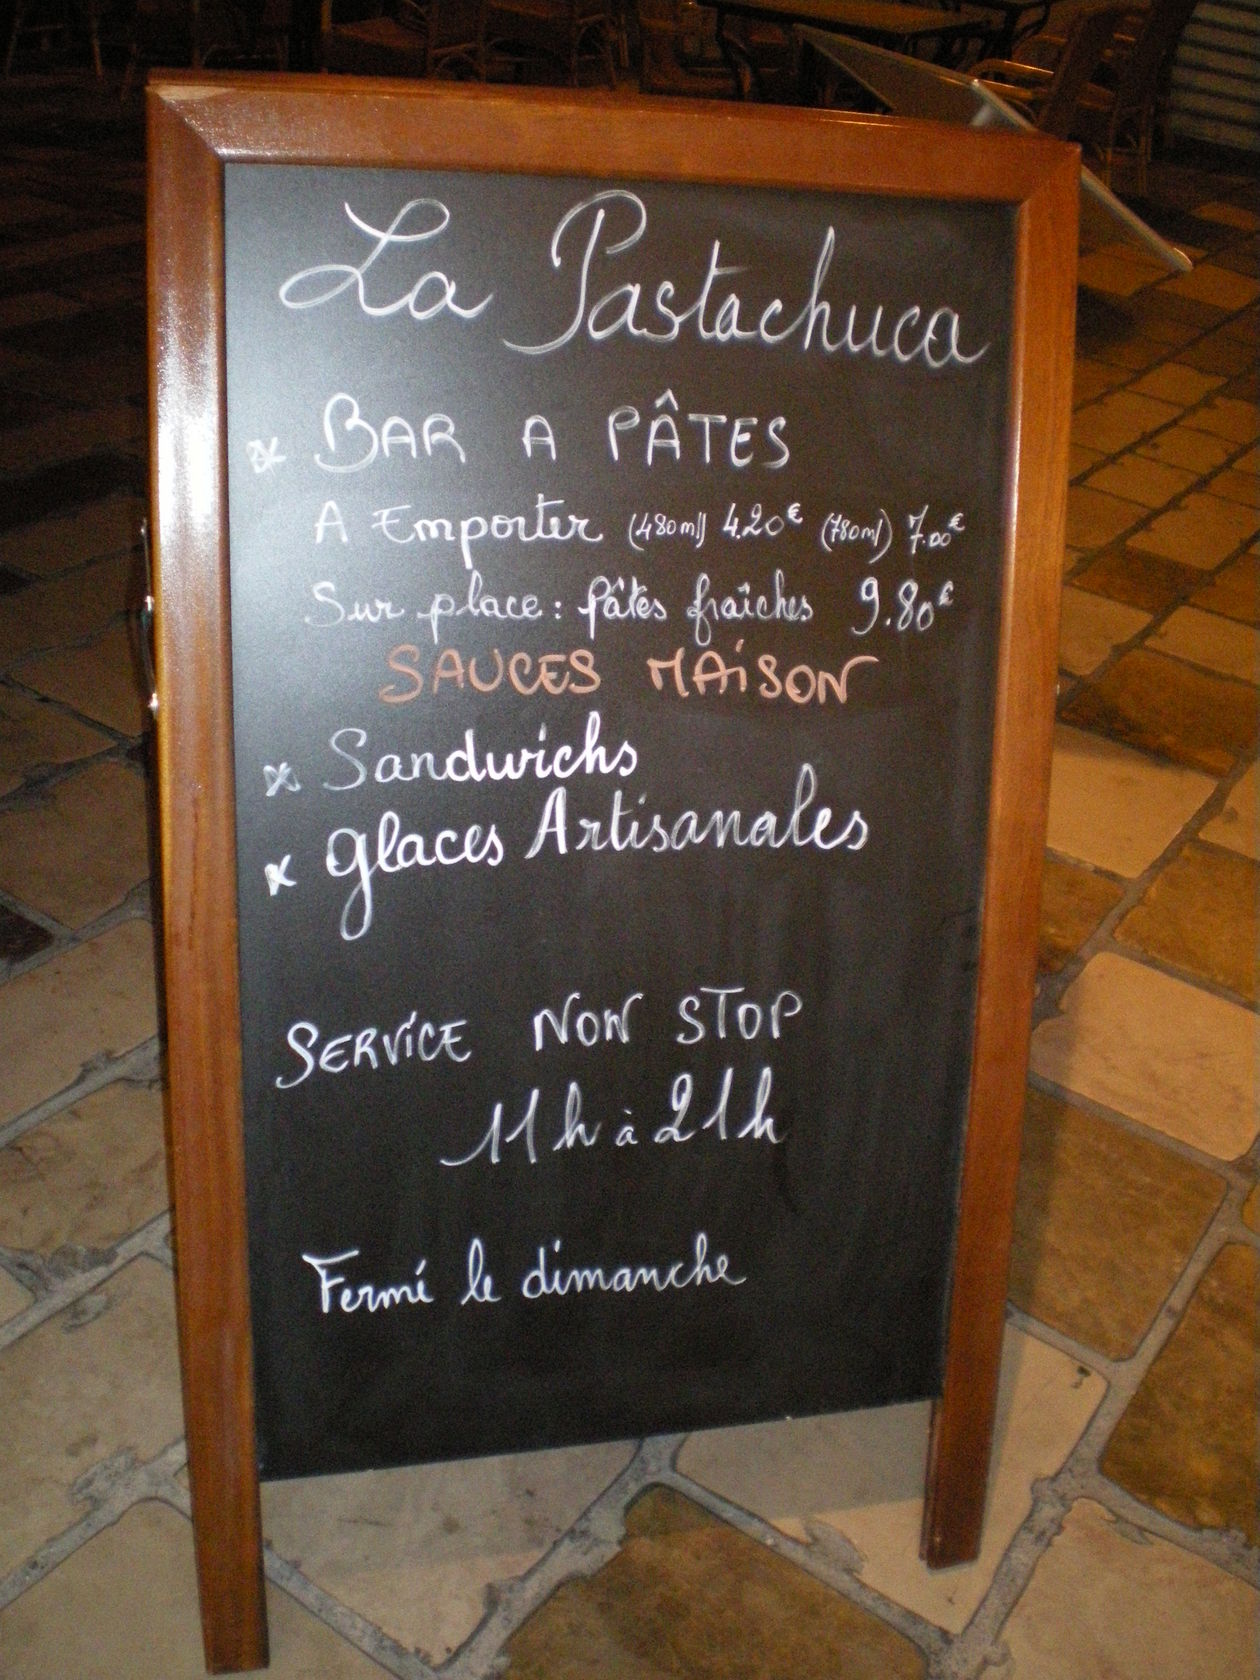 La Pastachuca
* BAR A PÂTES
A Emporter (480ml) 4.20€ (780ml) 7.00€
Sur place : Pâtes fraîches 9.80€
SAUCES MAISON
* Sandwichs
* glaces Artisanales
SERVICE NON STOP
11h à 21h
Fermé le dimanche